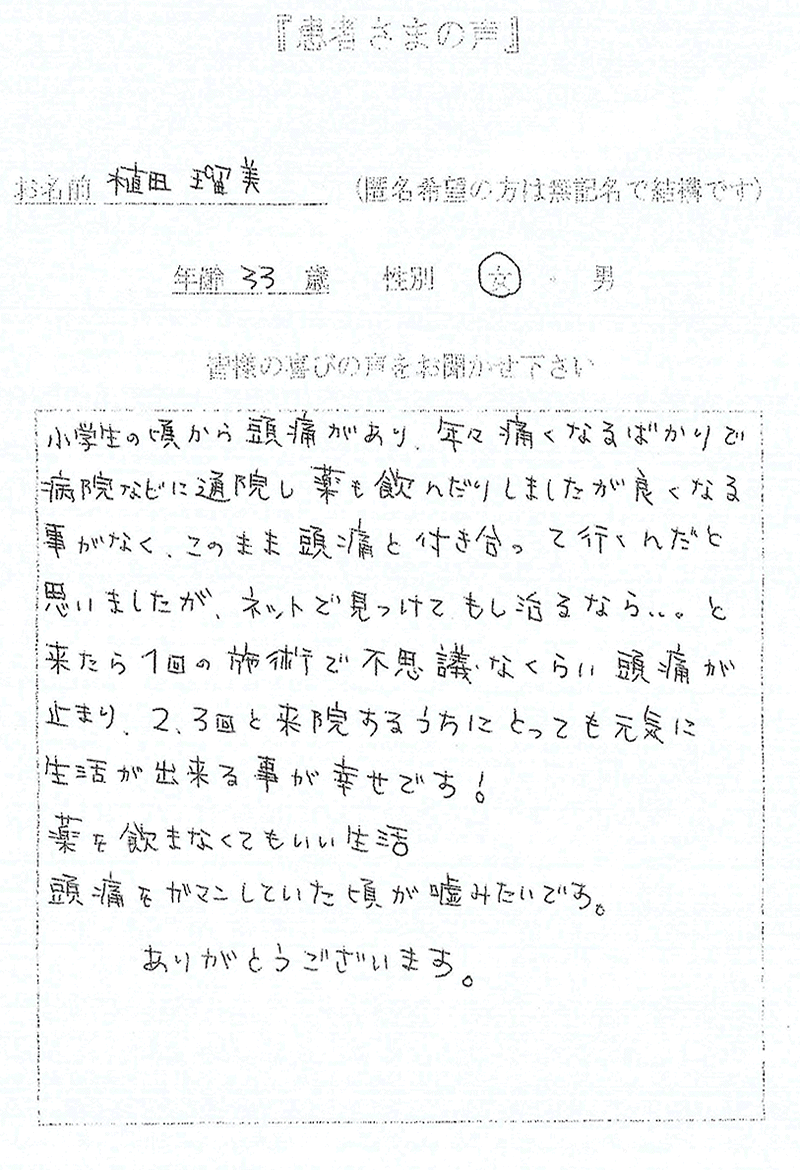 『患者さまの声』
お名前 植田 瑠美 (匿名希望の方は無記名で結構です)
年齢 33 歳 性別 女 ・ 男
皆様の喜びの声をお聞かせ下さい
小学生の頃から頭痛があり、年々痛くなるばかりで
病院などに通院し薬も飲んだりしましたが良くなる
事がなく、このまま頭痛と付き合って行くんだと
思いましたが、ネットで見つけてもし治るなら...。と
来たら1回の施術で不思議なくらい頭痛が
止まり、2、3回と来院するうちにとっても元気に
生活が出来る事が幸せです!
薬を飲まなくてもいい生活
頭痛をガマンしていた頃が嘘みたいです。
ありがとうございます。